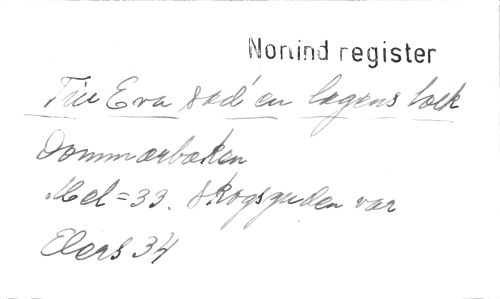 Norlind register
Till Eva sad' en lagens tolk
Dommarboken
Mel = 33. Skogsguden var
Elers 34